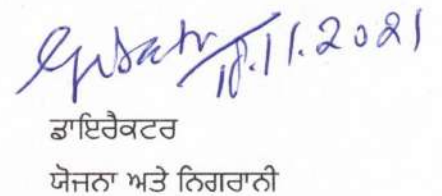 18.11.2021
ਡਾਇਰੈਕਟਰ
ਯੋਜਨਾ ਅਤੇ ਨਿਗਰਾਨੀ